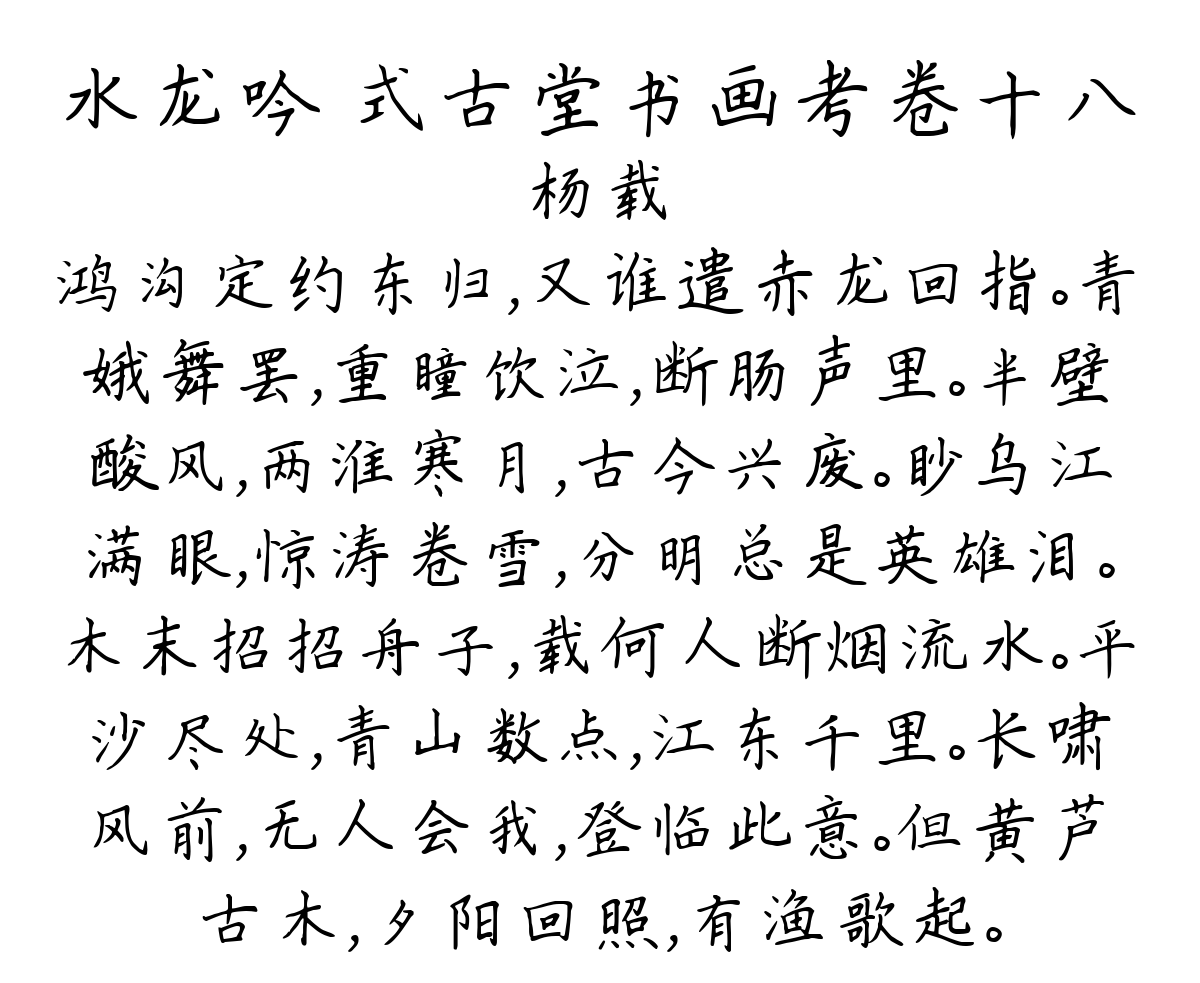 水龙吟 式古堂书画考卷十八
杨载
鸿沟定约东归,又谁遣赤龙回指。青
娥舞罢,重瞳饮泣,断肠声里。半壁
酸风,两淮寒月,古今兴废。眇乌江
满眼,惊涛卷雪,分明总是英雄泪。
木末招招舟子,载何人断烟流水。平
沙尽处,青山数点,江东千里。长啸
风前,无人会我,登临此意。但黄芦
古木,夕阳回照,有渔歌起。